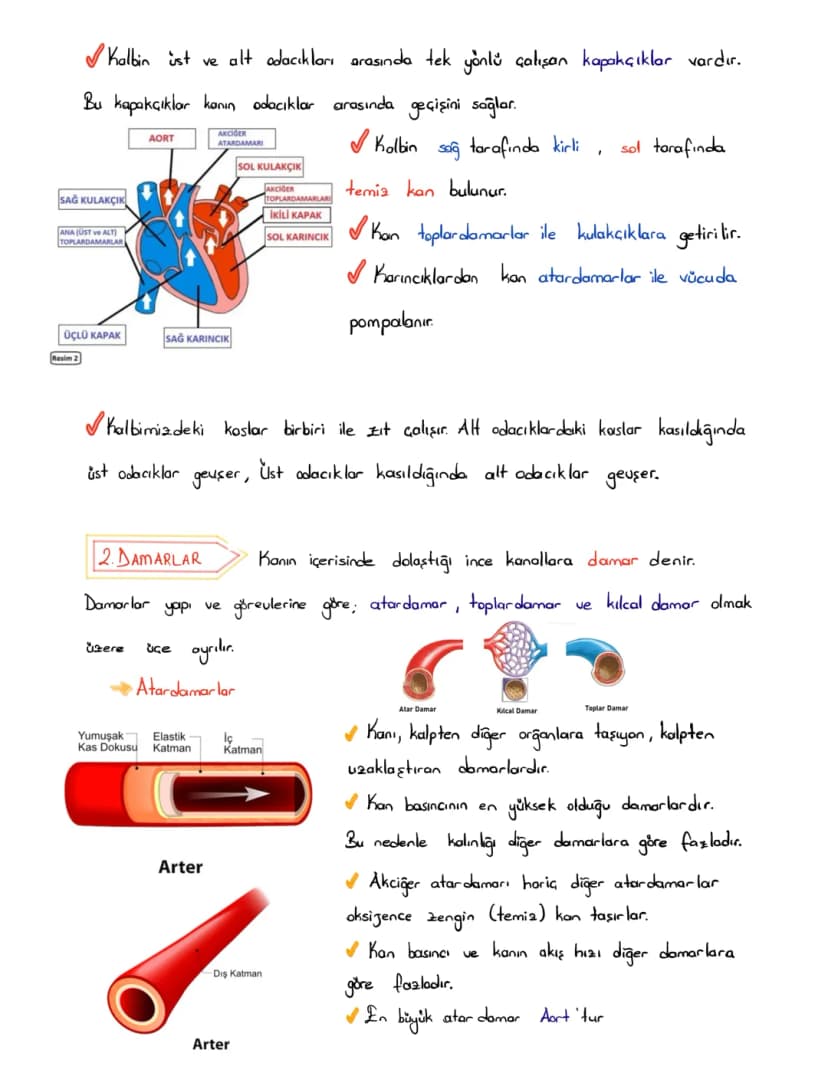 Kalbin üst ve alt odacıkları arasında tek yönlü çalışan kapakçıklar vardır.
Bu kapakçıklar kanın odacıklar arasında geçişini sağlar.
AORT
AKCİĞER
ATARDAMARI
SOL KULAKÇIK
SAĞ KULAKÇIK
AKCİĞER
TOPLARDAMARLARI
İKİLİ KAPAK
ANA (ÜST ve ALT)
TOPLARDAMARLAR
SOL KARINCIK
ÜÇLÜ KAPAK
SAĞ KARINCIK
Resim 2
Kalbin sağ tarafında kirli , sol tarafında
temiz kan bulunur.
Kan toplardamarlar ile kulakçıklara getirilir.
Karıncıklardan kan atardamarlar ile vücuda
pompalanır.
Kalbimizdeki kaslar birbiri ile zıt çalışır. Alt odacıklardaki kaslar kasıldığında
üst odacıklar gevşer, Üst odacıklar kasıldığında alt odacıklar gevşer.
2. DAMARLAR
Kanın içerisinde dolaştığı ince kanallara damar denir.
Damarlar yapı ve görevlerine göre; atardamar , toplardamar ve kılcal damar olmak
üzere üçe ayrılır.
Atar Damar
Kılcal Damar
Toplar Damar
Atardamarlar
Yumuşak
Kas Dokusu
Elastik
Katman
İç
Katman
Arter
Dış Katman
Arter
Kanı, kalpten diğer organlara taşıyan, kalpten
uzaklaştıran damarlardır.
Kan basıncının en yüksek olduğu damarlardır.
Bu nedenle kalınlığı diğer damarlara göre fazladır.
Akciğer atardamarı hariç diğer atardamarlar
oksijence zengin (temiz) kan taşırlar.
Kan basıncı ve kanın akış hızı diğer damarlara
göre fazladır.
En büyük atar damar Aort 'tur